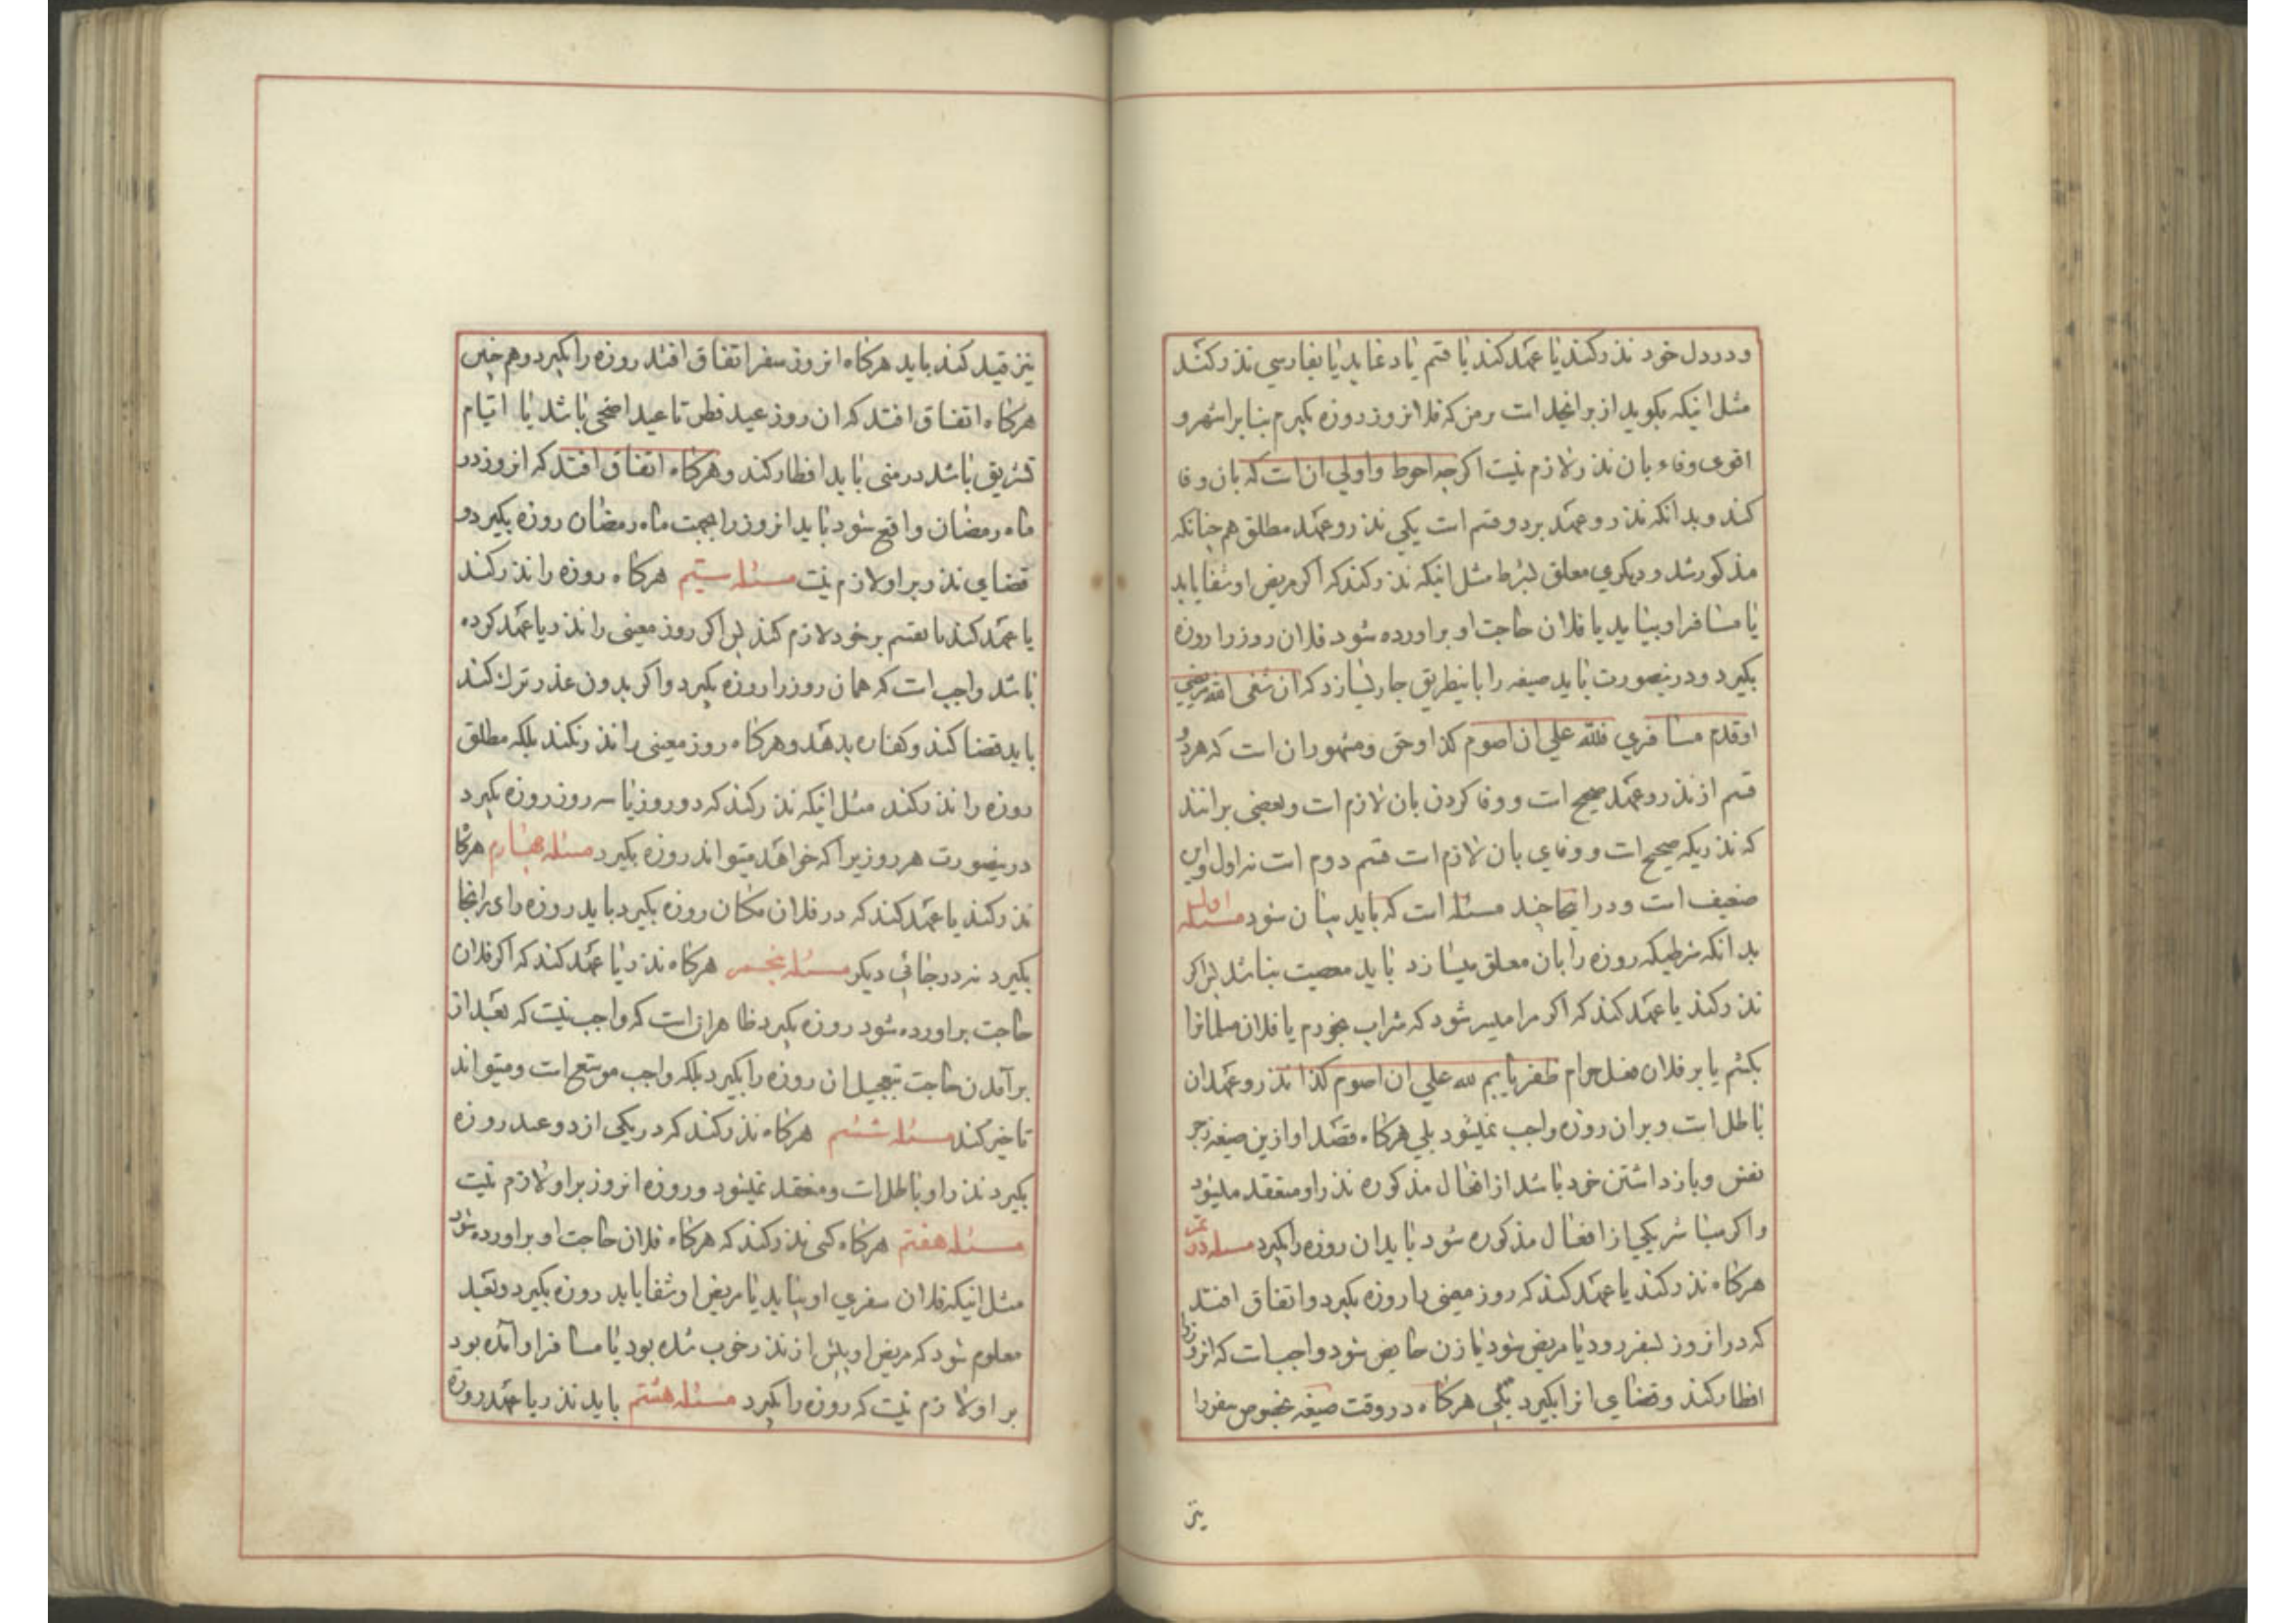 ودردل خود نذر کند یا عهد کند یا قسم یاد نماید یا بفارسی نذر کند
مثل اینکه بکوید از برای خداست بر من که فلان روز روزه بکیرم بنا بر اشهر و
اقوی وفاء بان نذر لازم نیست اکرچه احوط و اولی ان است که بان وفا
کند و بدانکه نذر و عهد بر دو قسم است یکی نذر و عهد مطلق هم چنانکه
مذکور شد و دیکری معلق بشرط مثل اینکه نذر کند که اکر مریض او شفا یابد
یا مسافر او بیاید یا فلان حاجت او براورده شود فلان روز را روزه
بکیرد و درینصورت باید صیغه را باینطریق جاری سازد که ان شفی الله مریضی
او قدم مسافری فلله علی ان اصوم کذا و حق و مشهور ان است که هر دو
قسم از نذر و عهد صحیح است و وفا کردن بان لازم است و بعضی برانند
که نذریکه صحیح است و وفای بان لازم است قسم دوم است نه اول و این
ضعیف است و در اینجا چند مسئله است که باید بیان شود مسئله اول
بدانکه شرطیکه روزه را بان معلق میسازد باید معصیت نباشد پس اکر
نذر کند یا عهد کند که اکر مرا میسر شود که شراب بخورم یا فلان مسلمانرا
بکشم یا بر فلان فعل حرام ظفر یابم لله علی ان اصوم کذا نذر و عهد ان
باطل است و بر ان روزه واجب نمیشود بلی هرکاه قصد او ازین صیغه زجر
نفس و بازداشتن خود باشد از افعال مذکوره نذر او منعقد میشود
و اکر مباشر یکی از افعال مذکوره شود باید ان روزه را بکیرد مسئله دویم
هرکاه نذر کند یا عهد کند که روز معینی را روزه بکیرد و اتفاق افتد
که در انروز بسفر رود یا مریض شود یا زن حایض شود واجب است که انروز
افطار کند و قضای انرا بکیرد بلی هرکاه در وقت صیغه بخصوص سفر را
نیز
نیز قید کند باید هرکاه انروز سفر اتفاق افتد روزه را بکیرد و هم چنین
هرکاه اتفاق افتد که ان روز عید فطر تا عید اضحی باشد یا ایام
تشریق باشد در منی باید افطار کند و هرکاه اتفاق افتد که انروز در
ماه رمضان واقع شود باید انروز را بجهت ماه رمضان روزه بکیرد و
قضای نذر بر او لازم نیست مسئله سیّم هرکاه روزه را نذر کند
یا عهد کند یا بقسم بر خود لازم کند پس اکر روز معینی را نذر یا عهد کرده
باشد واجب است که همان روز را روزه بکیرد و اکر بدون عذر ترک کند
باید قضا کند و کفاره بدهد و هرکاه روز معینی را نذر نکند بلکه مطلق
روزه را نذر کند مثل اینکه نذر کند که دو روز یا سه روز روزه بکیرد
درینصورت هر روزیرا که خواهد میتواند روزه بکیرد مسئله چهارم هرکاه
نذر کند یا عهد کند که در فلان مکان روزه بکیرد باید روزه را در انجا
بکیرد نه در جائی دیکر مسئله پنجم هرکاه نذر یا عهد کند که اکر فلان
حاجت براورده شود روزه بکیرد ظاهر ان است که واجب نیست که بعد از
برآمدن حاجت بتعجیل ان روزه را بکیرد بلکه واجب موسّع است و میتواند
تاخیر کند مسئله ششم هرکاه نذر کند که در یکی از دو عید روزه
بکیرد نذر او باطل است و منعقد نمیشود و روزه انروز بر او لازم نیست
مسئله هفتم هرکاه کسی نذر کند که هرکاه فلان حاجت او براورده شود
مثل اینکه فلان سفری او بیاید یا مریض او شفا یابد روزه بکیرد و بعد
معلوم شود که مریض او پیش از نذر خوب شده بود یا مسافر او آمده بود
بر او لازم نیست که روزه را بکیرد مسئله هشتم باید نذر یا عهد روزه